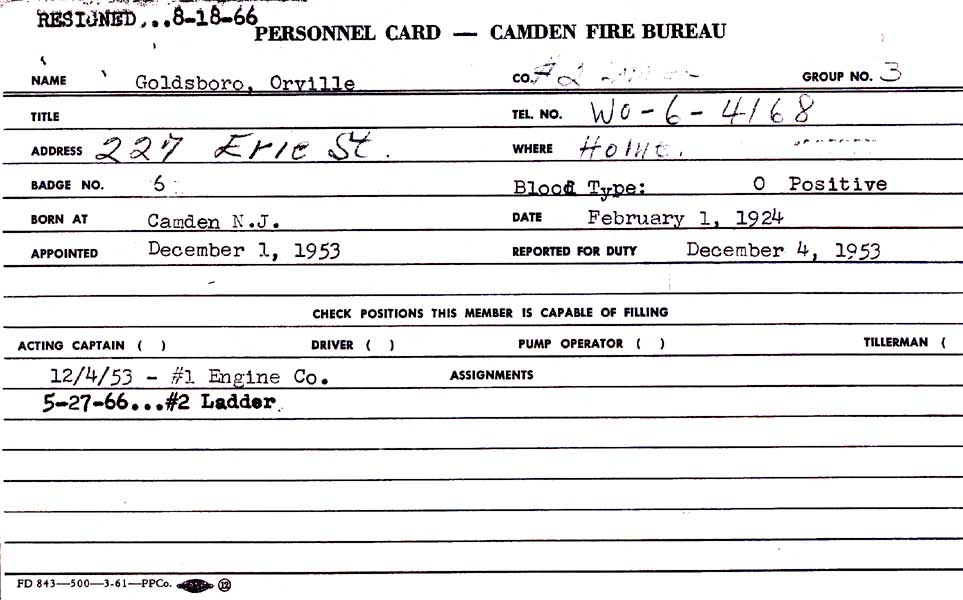 RESIGNED...8-18-66
PERSONNEL CARD — CAMDEN FIRE BUREAU
NAME Goldsboro, Orville CO. #2 GROUP NO. 3
TITLE TEL. NO. WO-6-4168
ADDRESS 227 Erie St. WHERE Home.
BADGE NO. 6 Blood Type: O Positive
BORN AT Camden N.J. DATE February 1, 1924
APPOINTED December 1, 1953 REPORTED FOR DUTY December 4, 1953
CHECK POSITIONS THIS MEMBER IS CAPABLE OF FILLING
ACTING CAPTAIN ( ) DRIVER ( ) PUMP OPERATOR ( ) TILLERMAN (
12/4/53 - #1 Engine Co. ASSIGNMENTS
5-27-66...#2 Ladder
FD 843—500—3-61—PPCo. 12